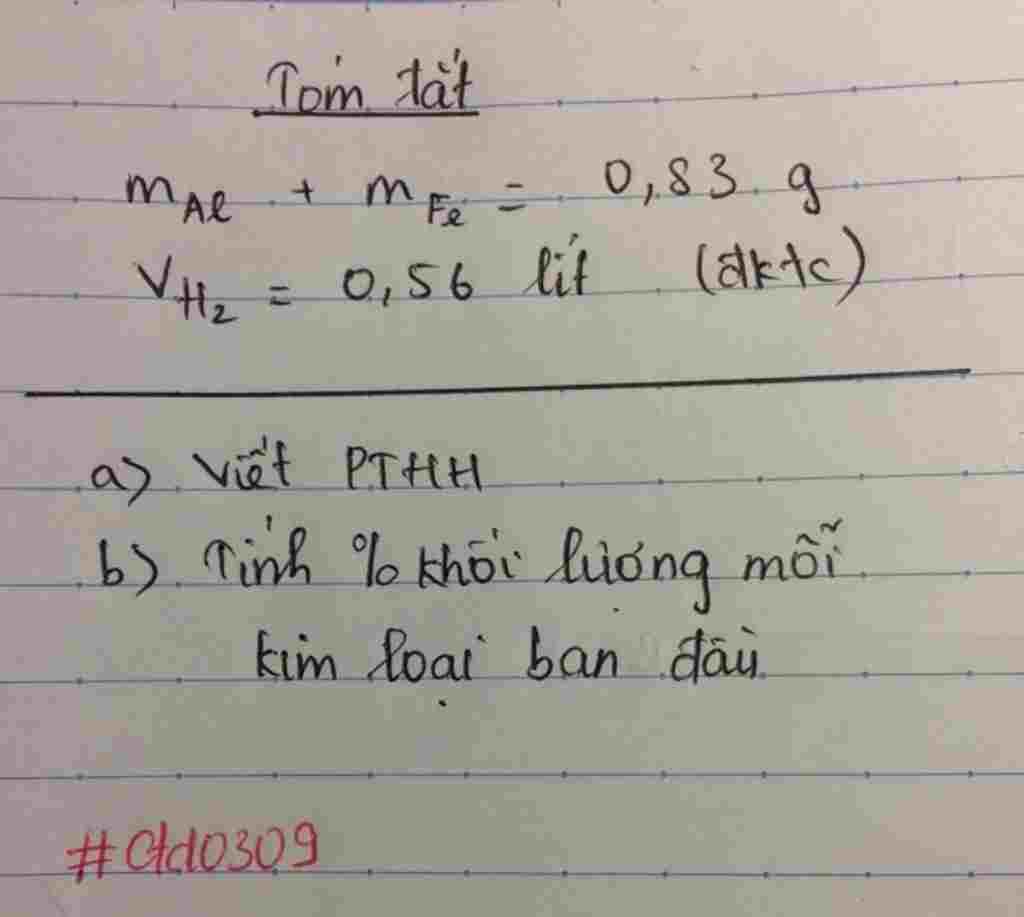 Tóm tắt
mAl + mFe = 0,83 g
VH2 = 0,56 lít (đktc)
a) Viết PTHH
b) Tính % khối lượng mỗi
kim loại ban đầu
#Ctd0309